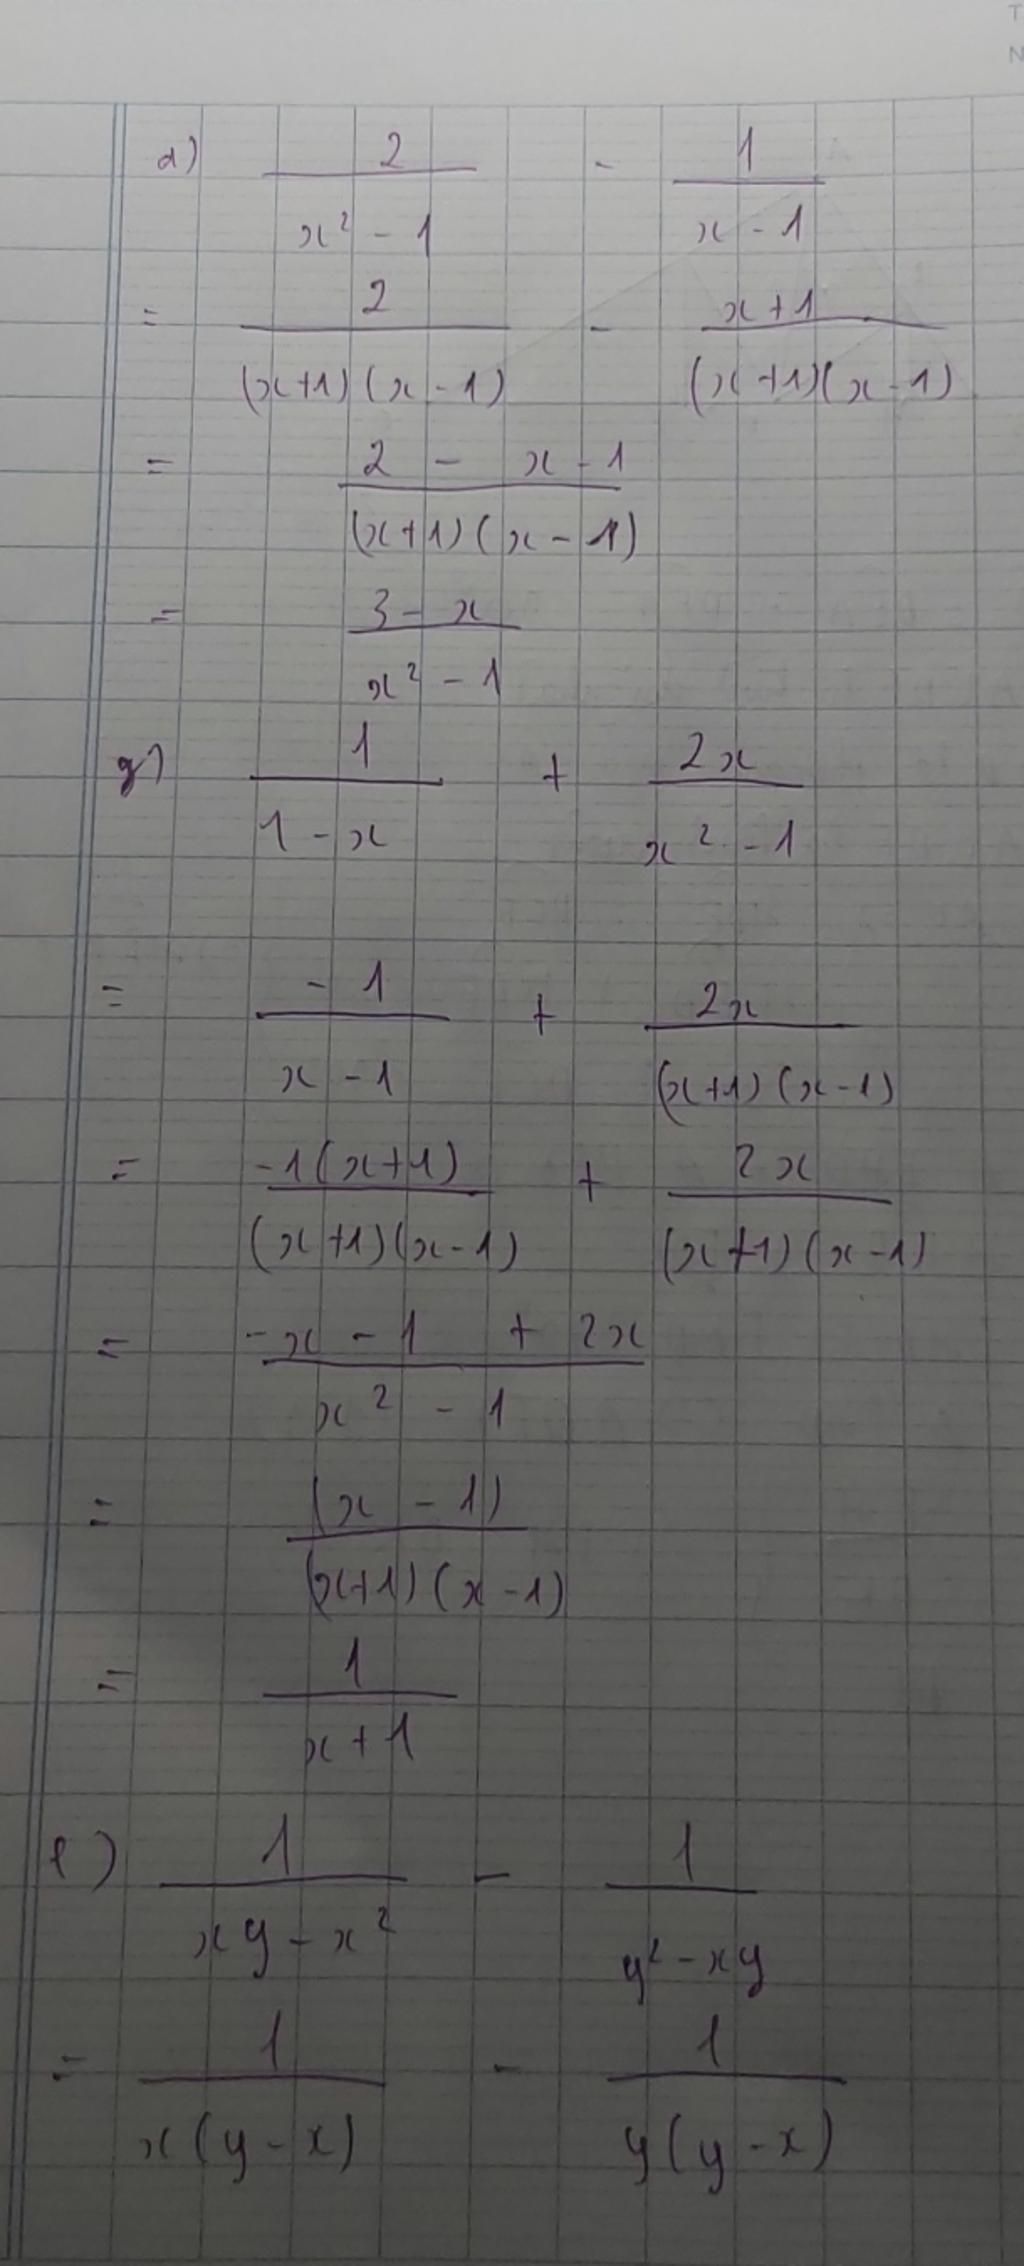 d) 2/(x² - 1) - 1/(x - 1)
= 2/((x+1)(x-1)) - (x+1)/((x+1)(x-1))
= (2 - x - 1)/((x+1)(x-1))
= (3 - x)/(x² - 1)
g) 1/(1 - x) + 2x/(x² - 1)
= -1/(x - 1) + 2x/((x+1)(x-1))
= -1(x+1)/((x+1)(x-1)) + 2x/((x+1)(x-1))
= (-x - 1 + 2x)/(x² - 1)
= (x - 1)/((x+1)(x-1))
= 1/(x+1)
e) 1/(xy - x²) - 1/(y² - xy)
= 1/(x(y - x)) - 1/(y(y - x))